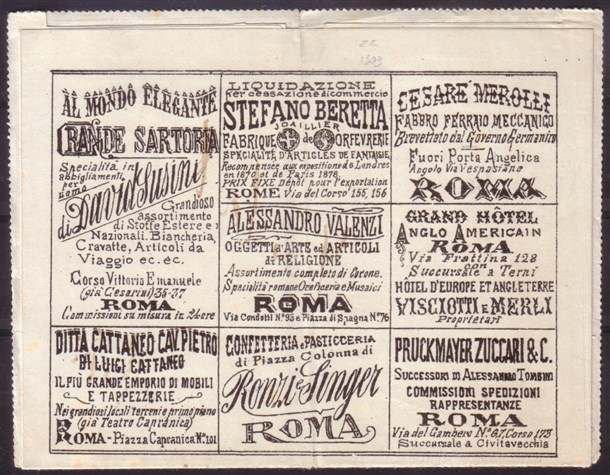 2C
1903
AL MONDO ELEGANTE
GRANDE SARTORIA
Specialità in
abbigliamenti
per
uomo
di David Susini
Grandioso
assortimento
di Stoffe Estere e
Nazionali. Biancheria,
Cravatte, Articoli da
Viaggio ec. éc.
Corso Vittorio Emanuele
(già Cesarini) 35-37.
ROMA
Commissioni su misura in 24 ore
LIQUIDAZIONE
per cessazione di commercio
STEFANO BERETTA
JOAILLIER
FABRIQUE de ORFEVRERIE
SPÉCIALITÉ D'ARTICLES DE FANTAISIE,
Recompensée aux expositions de Londres
en 1870 et de Paris 1878.
PRIX FIXE Dépôt pour l'exportation
ROME Via del Corso 155, 156
CESARE MEROLLI
FABBRO FERRAIO MECCANICO
Brevettato dal Governo Germanico
Fuori Porta Angelica
Angolo Via Vespasiano
ROMA
ALESSANDRO VALENZI
OGGETTI d'ARTE ed ARTICOLI
di RELIGIONE
Assortimento completo di Corone.
Specialità romane Oreficeria e Musaici
ROMA
Via Condotti Nº 95 e Piazza di Spagna Nº 76
GRAND HÔTEL
ANGLO AMERICAIN
ROMA
Via Frattina 128
con
Succursale a Terni
HÔTEL D'EUROPE ET ANGLETERRE
VISCIOTTI E MERLI
Proprietari
DITTA CATTANEO CAV. PIETRO
DI LUIGI CATTANEO
IL PIÙ GRANDE EMPORIO DI MOBILI
E TAPPEZZERIE
Nei grandiosi locali terreni e primo piano
(già Teatro Capranica)
ROMA - Piazza Capranica Nº 101
CONFETTERIA e PASTICCERIA
di Piazza Colonna di
Ronzi e Singer
ROMA
PRUCKMAYER ZUCCARI & C.
SUCCESSORI DI ALESSANDRO TOMBINI
COMMISSIONI SPEDIZIONI
RAPPRESENTANZE
ROMA
Via del Gambero Nº 67, Corso 173
Succursale a Civitavecchia